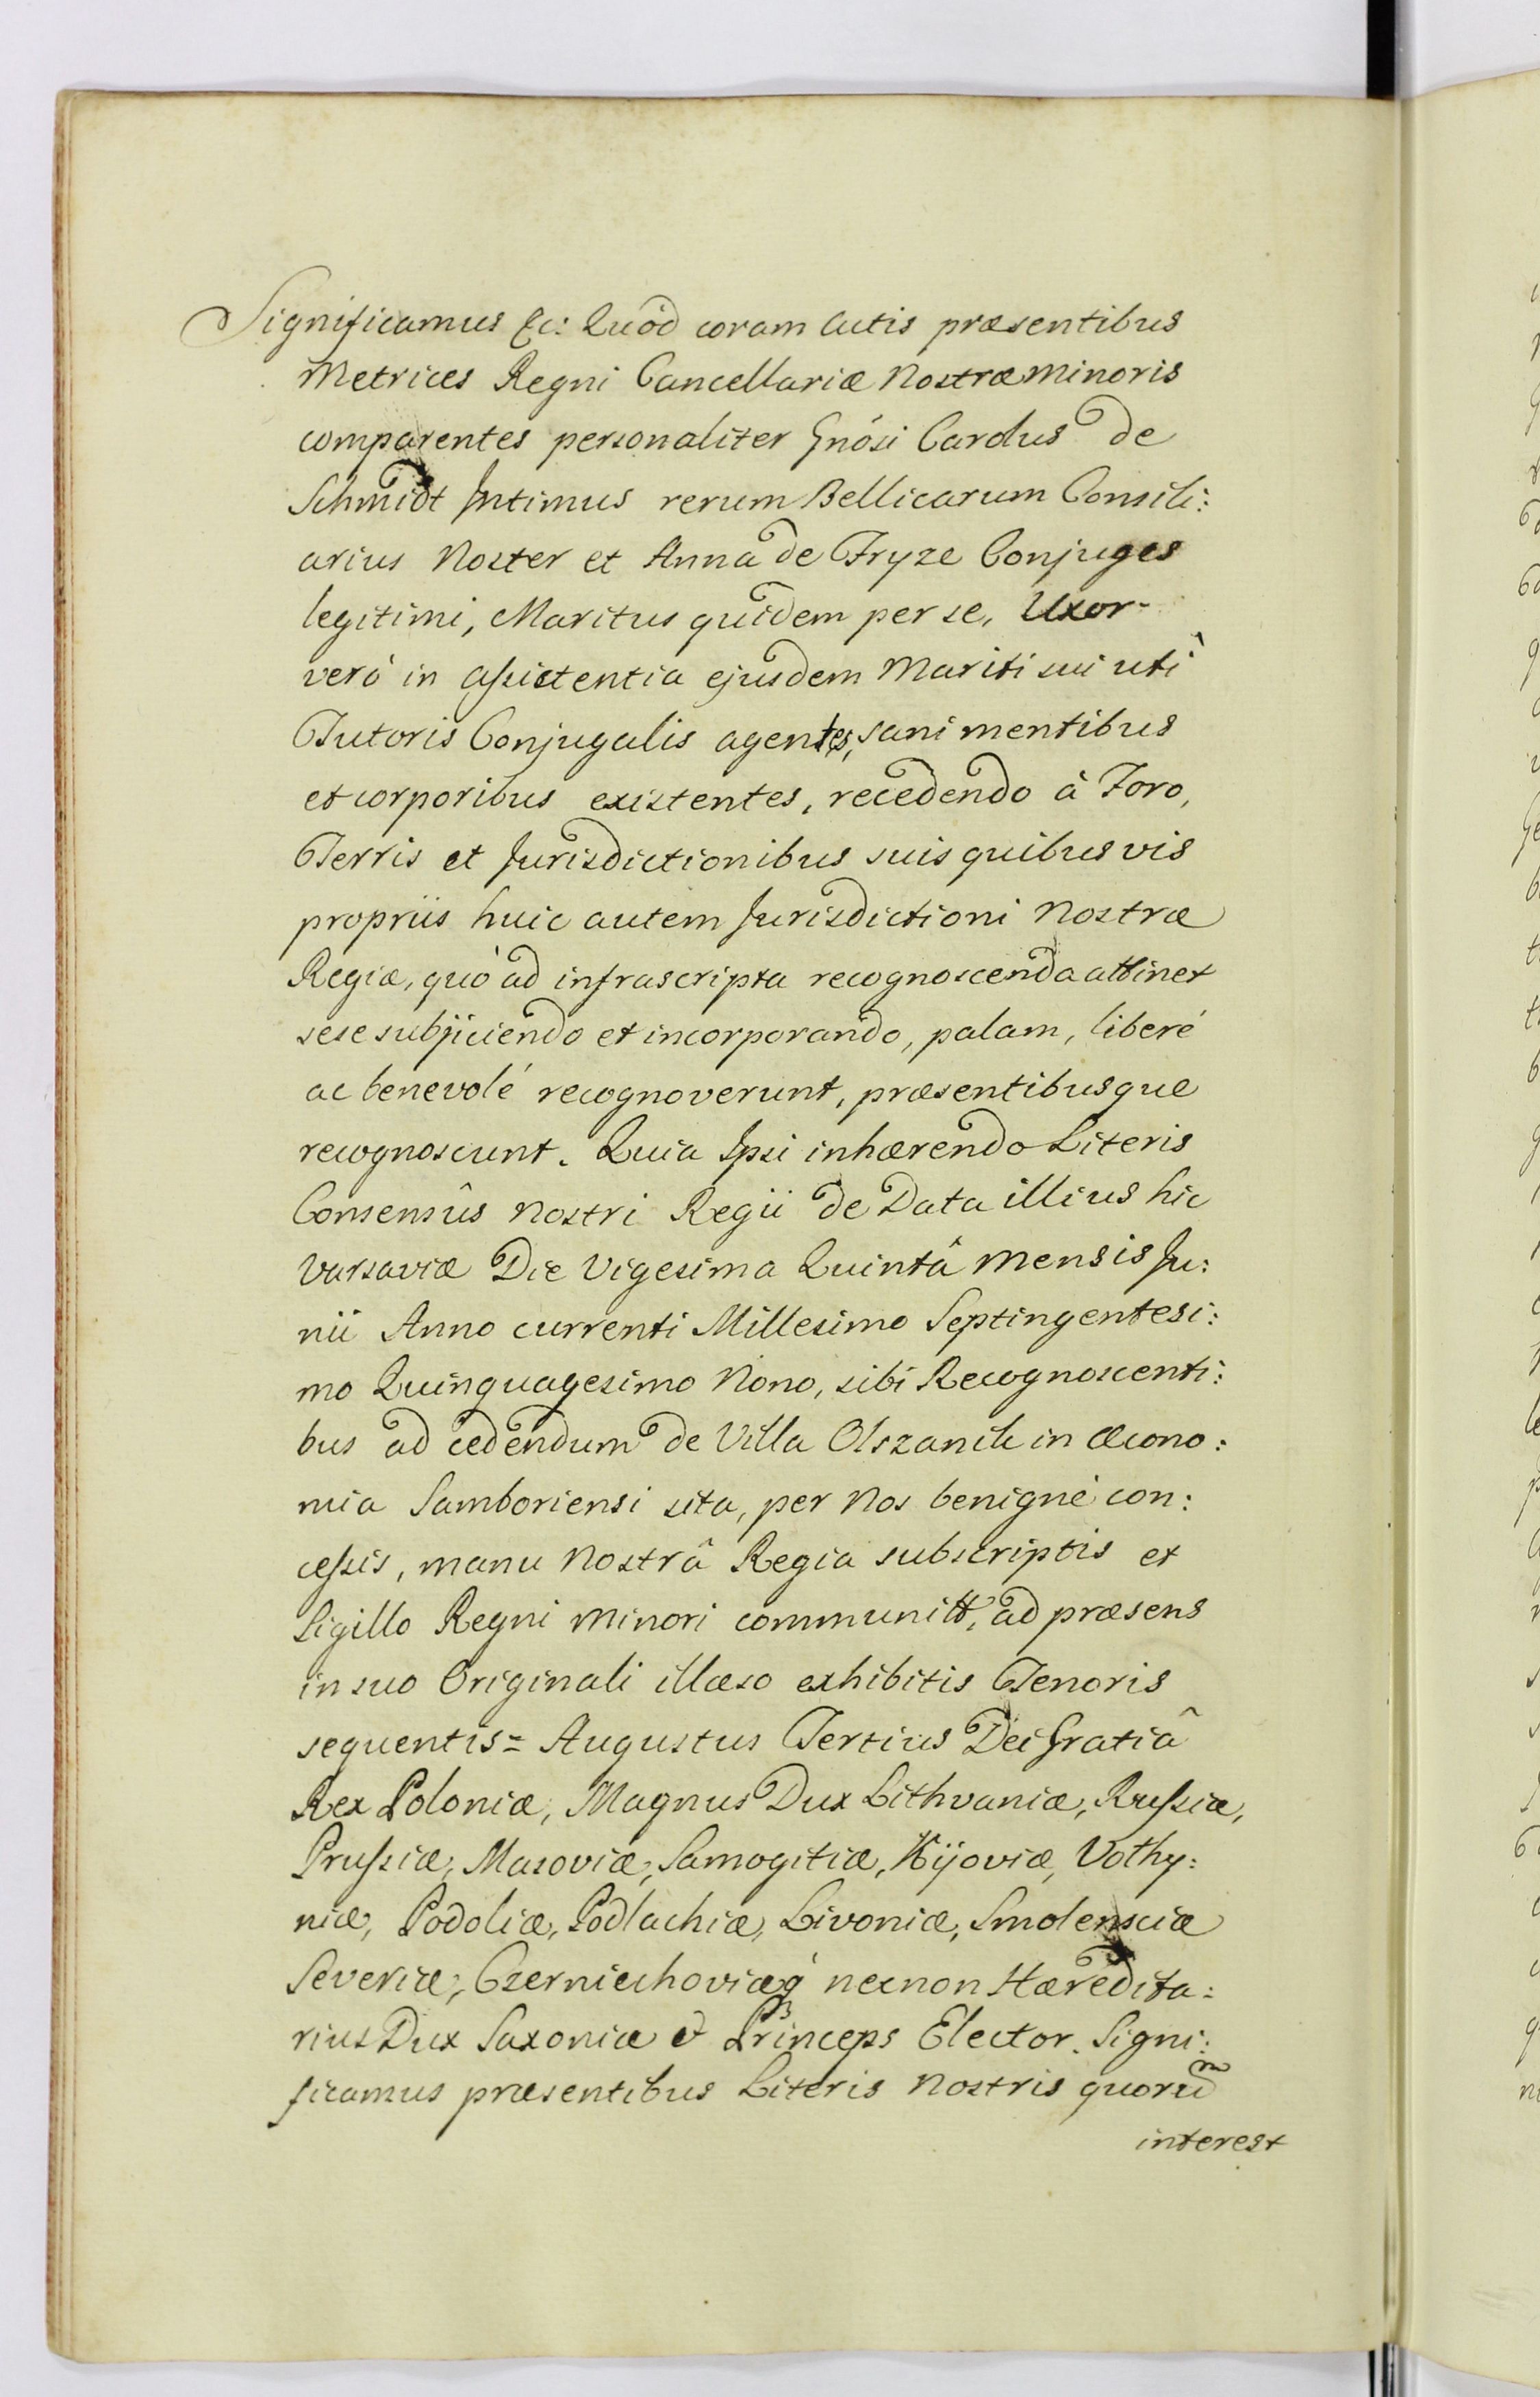 Significamus &c: Quòd coram Actis præsentibus
Metrices Regni Cancellariæ Nostræ Minoris
comparentes personaliter Gnósi Carolus de
Schmidt Intimus rerum Bellicarum Consili:
arius Noster et Anna de Fryze Conjuges
legitimi, Maritus quidem per se, Uxor-
verò in assistentia ejusdem Mariti sui uti
Tutoris Conjugalis agentes, sani mentibus
et corporibus existentes, recedendo à Foro,
Terris et Jurisdictionibus suis quibusvis
propriis huic autem Jurisdictioni Nostræ
Regiæ, quò ad infrascripta recognoscenda attinet
sese subjiciendo et incorporando, palam, liberé
ac benevolé recognoverunt, præsentibusque
recognoscunt. Quia Ipsi inhærendo Literis
Consensûs Nostri Regii de Data illius hic
Varsaviæ Die Vigesima Quintâ Mensis Ju:
nii Anno currenti Millesimo Septingentesi:
mo Quinquagesimo Nono, sibi Recognoscenti:
bus ad cedendum de Villa Olszanik in Œcono:
mia Samboriensi sita, per Nos benigné con:
cessis, manu Nostrâ Regia subscriptis et
Sigillo Regni Minori communitt, ad præsens
in suo Originali illæso exhibitis Tenoris
sequentis= Augustus Tertius Dei Gratiâ
Rex Poloniæ, Magnus Dux Lithvaniæ, Russiæ,
Prussiæ, Masoviæ, Samogitiæ, Kijoviæ, Volhy:
niæ, Podoliæ, Podlachiæ, Livoniæ, Smolensciæ
Severiæ, Czerniechoviæq́ necnon Hæredita:
rius Dux Saxoniæ & Princeps Elector. Signi:
ficamus præsentibus Literis Nostris quorũ
interest